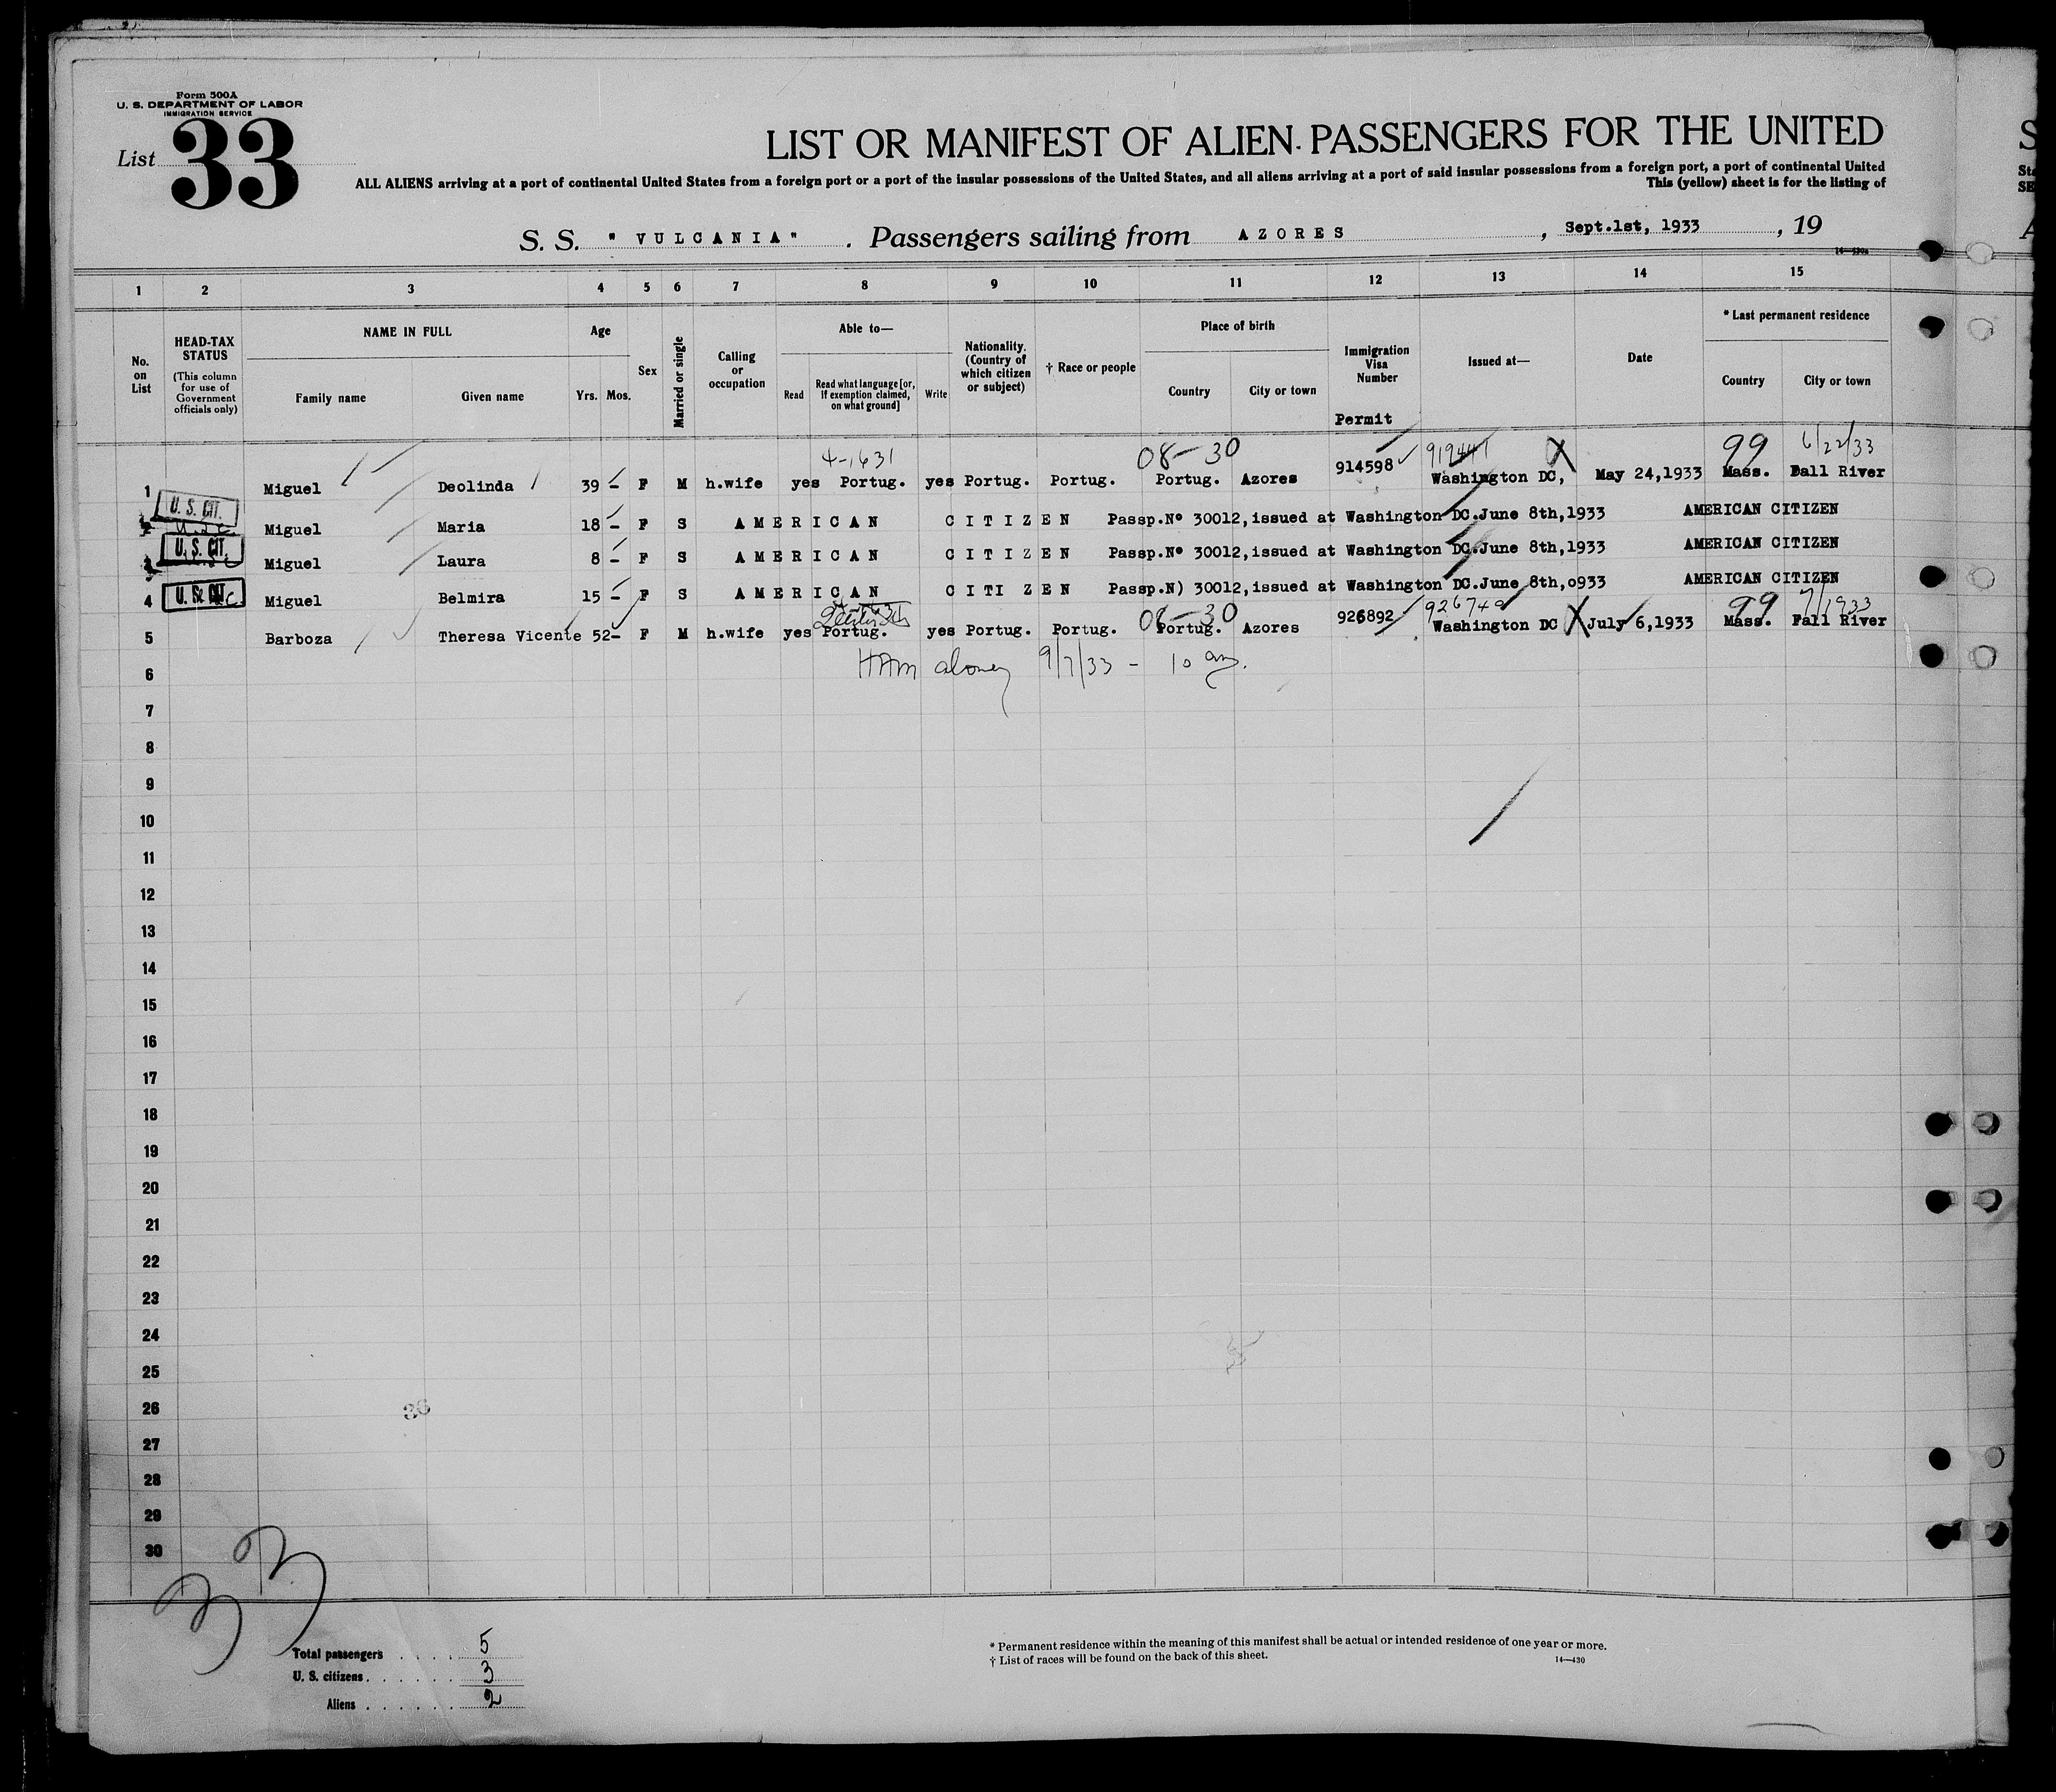 Form 500A
U. S. DEPARTMENT OF LABOR
IMMIGRATION SERVICE
List 33
LIST OR MANIFEST OF ALIEN PASSENGERS FOR THE UNITED
ALL ALIENS arriving at a port of continental United States from a foreign port or a port of the insular possessions of the United States, and all aliens arriving at a port of said insular possessions from a foreign port, a port of continental United
This (yellow) sheet is for the listing of
S. S. "VULCANIA". Passengers sailing from AZORES, Sept.1st, 1933, 19
14—430a
1 2 3 4 5 6 7 8 9 10 11 12 13 14 15
No. on List
HEAD-TAX STATUS (This column for use of Government officials only)
NAME IN FULL
Family name Given name
Age
Yrs. Mos.
Sex
Married or single
Calling or occupation
Able to—
Read Read what language [or, if exemption claimed, on what ground] Write
Nationality. (Country of which citizen or subject)
† Race or people
Place of birth
Country City or town
Immigration Visa Number
Permit
Issued at—
Date
* Last permanent residence
Country City or town
4-1631 08-30 919441 X 99 6/22/33
1 Miguel Deolinda 39 - F M h.wife yes Portug. yes Portug. Portug. Portug. Azores 914598 Washington DC, May 24,1933 Mass. Fall River
U. S. CIT.
2 Miguel Maria 18 - F S AMERICAN CITIZEN Passp.Nº 30012,issued at Washington DC.June 8th,1933 AMERICAN CITIZEN
U. S. CIT.
3 Miguel Laura 8 - F S AMERICAN CITIZEN Passp.Nº 30012,issued at Washington DC.June 8th,1933 AMERICAN CITIZEN
U. S. CIT.
4 Miguel Belmira 15 - F S AMERICAN CITI ZEN Passp.N) 30012,issued at Washington DC.June 8th,o933 AMERICAN CITIZEN
08-30 926740 X 99
5 Barboza Theresa Vicente 52- F M h.wife yes Portug. yes Portug. Portug. Portug. Azores 926892 Washington DC July 6,1933 Mass. Fall River
6 9/7/33 - 10 am.
7
8
9
10
11
12
13
14
15
16
17
18
19
20
21
22
23
24
25
26 36
27
28
29
30
33
Total passengers 5
U. S. citizens 3
Aliens 2
* Permanent residence within the meaning of this manifest shall be actual or intended residence of one year or more.
† List of races will be found on the back of this sheet.
14—430